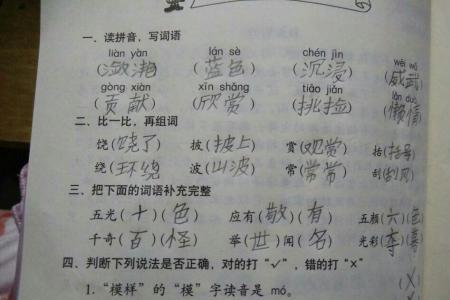 一、读拼音，写词语
liàn yàn lán sè chén jìn wēi wǔ
( ) (蓝色) (沉浸) (威武)
gòng xiàn xīn shǎng tiāo jiǎn lǎn duò
(贡献) (欣赏) (挑捡) (懒惰)
二、比一比，再组词
饶(饶了) 披(披上) 赏(观赏) 括(括号)
绕(环绕) 波(山波) 常(常常) 刮(刮风)
三、把下面的词语补充完整
五光(十)(色) 应有(敬)(有) 五颜(六)(色)
千奇(百)(怪) 举(世)闻(名) 光彩(夺)( )
四、判断下列说法是否正确，对的打“√”，错的打“×”
1.“模样”的“模”字读音是 mó。 (X